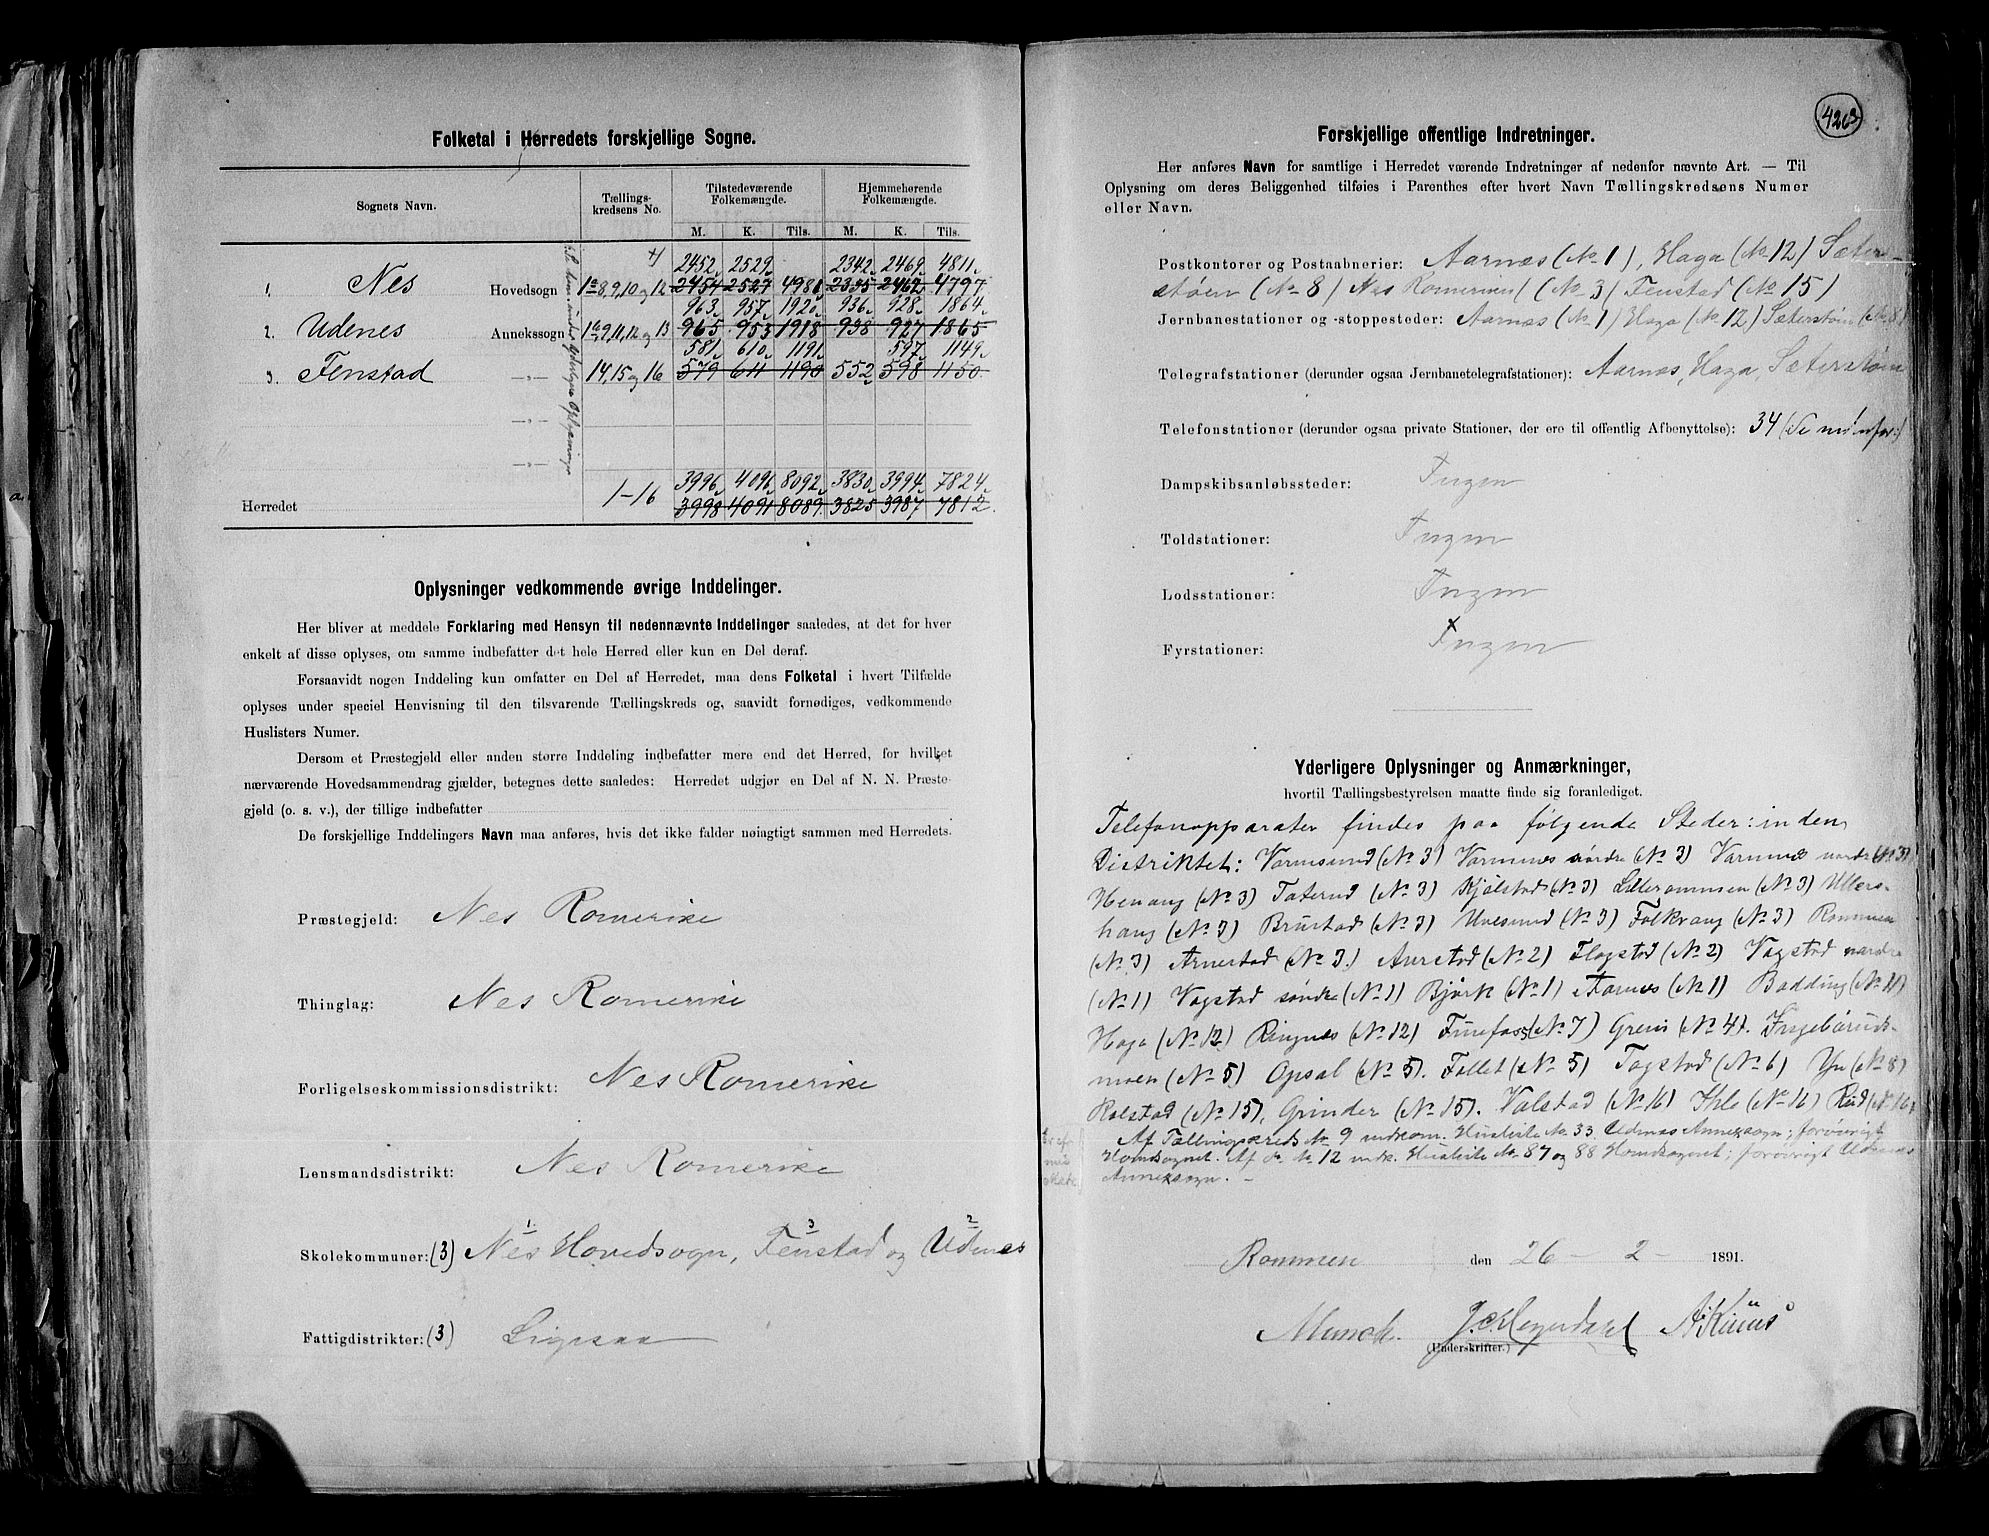 Folketal i Herredets forskjellige Sogne.
Sognets Navn. Tællings-kredsens No. Tilstedeværende Folkemængde. Hjemmehørende Folkemængde.
M. K. Tils. M. K. Tils.
2452 2529 2342 2469 4811
1. Nes Hovedsogn 1-8, 9, 10 og 12 2454 2527 4981 2335 2462 4797
963 957 1920 936 928 1864
2. Udenes Annekssogn 9, 11, 12 og 13 965 953 1918 938 927 1865
581 610 1191 597 1149
3. Fenstad 14, 15 og 16 579 611 1190 552 598 1150
3996 4096 8092 3830 3994 7824
Herredet 1-16 3998 4091 8089 3825 3987 7812
Oplysninger vedkommende øvrige Inddelinger.
Her bliver at meddele Forklaring med Hensyn til nedennævnte Inddelinger saaledes, at det for hver
enkelt af disse oplyses, om samme indbefatter det hele Herred eller kun en Del deraf.
Forsaavidt nogen Inddeling kun omfatter en Del af Herredet, maa dens Folketal i hvert Tilfælde
oplyses under speciel Henvisning til den tilsvarende Tællingskreds og, saavidt fornødiges, vedkommende
Huslisters Numer.
Dersom et Præstegjeld eller anden større Inddeling indbefatter mere end det Herred, for hvilket
nærværende Hovedsammendrag gjælder, betegnes dette saaledes: Herredet udgjør en Del af N. N. Præste-
gjeld (o. s. v.), der tillige indbefatter
De forskjellige Inddelingers Navn maa anføres, hvis det ikke falder nøiagtigt sammen med Herredets.
Præstegjeld: Nes Romerike
Thinglag: Nes Romerike
Forligelseskommissionsdistrikt: Nes Romerike
Lensmandsdistrikt: Nes Romerike
1. 3 2
Skolekommuner: (3) Nes Hovedsogn, Fenstad og Udenes
Fattigdistrikter: (3) Ligesaa
4263
Forskjellige offentlige Indretninger.
Her anføres Navn for samtlige i Herredet værende Indretninger af nedenfor nævnte Art. — Til
Oplysning om deres Beliggenhed tilføies i Parenthes efter hvert Navn Tællingskredsens Numer
eller Navn.
Postkontorer og Postaabnerier: Aarnæs (No 1), Haga (No 12) Sæter-
støen (No 8) Nes Romerike (No 3) Fenstad (No 15)
Jernbanestationer og -stoppesteder: Aarnæs (No 1) Haga (No 12) Sæterstøen (No 8)
Telegrafstationer (derunder ogsaa Jernbanetelegrafstationer): Aarnæs, Haga, Sæterstøen
Telefonstationer (derunder ogsaa private Stationer, der ere til offentlig Afbenyttelse): 34 (Se nedenfor)
Dampskibsanløbssteder: Ingen
Toldstationer: Ingen
Lodsstationer: Ingen
Fyrstationer: Ingen
Yderligere Oplysninger og Anmærkninger,
hvortil Tællingsbestyrelsen maatte finde sig foranlediget.
Telefonapparater findes paa følgende Steder: inden
Distriktet: Vormsund (No 3) Vormnes søndre (No 3) Vormnes nordre (No 3)
Henang (No 3) Taterud (No 3) Kjølstad (No 3) Lillerommen (No 3) Ullers-
hang (No 3) Brustad (No 3) Uvesund (No 3) Folkvang (No 3) Rommen
(No 3) Arnestad (No 3) Aurstad (No 2) Flagstad (No 2) Vagstad nordre
(No 1) Vagstad søndre (No 1) Bjørk (No 1) Aarnes (No 1) Bodding (No 11)
Haga (No 12) Ringnes (No 12) Funefoss (No 7) Greni (No 4). Ingebøruds-
moen (No 5) Opsal (No 5). Follet (No 5) Togstad (No 6) Yn (No 8)
Rolstad (No 15), Grinder (No 15). Valstad (No 16) Ihle (No 16) Rud (No 16)
Af Tællingskreds No 9 vedkom. Husliste No 33 Udenes Annexsogn; forøvrigt
Hovedsognet. Af do No 12 vedk. Husliste No 87 og 88 Hovedsognet; forøvrigt Udenes
Annexsogn. –
Rommen den 26 - 2 - 1891.
Munck.
(Underskrifter.)